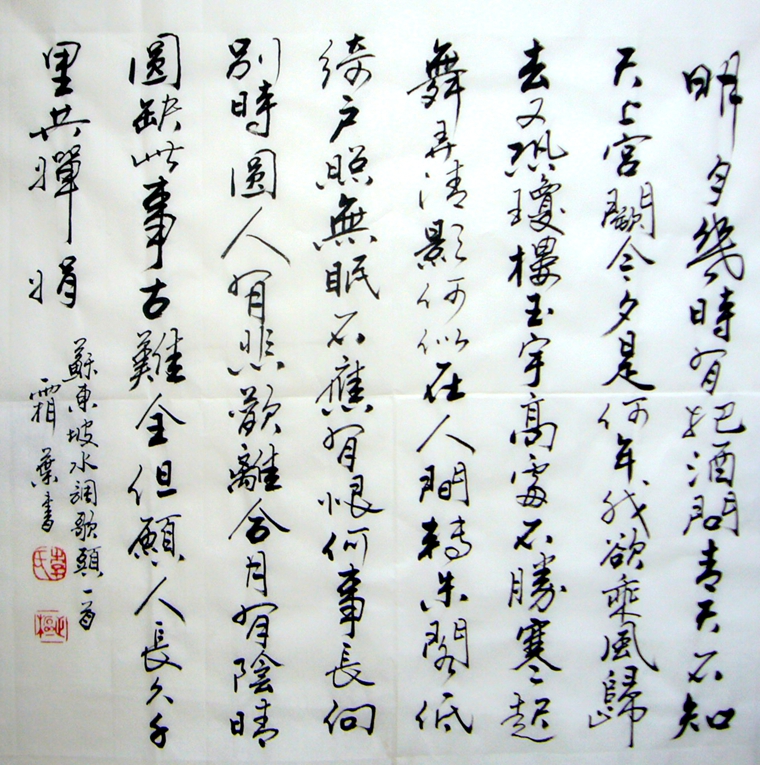 明月幾時有把酒問青天不知
天上宮闕今夕是何年我欲乘風歸
去又恐瓊樓玉宇高處不勝寒起
舞弄清影何似在人間轉朱閣低
綺戶照無眠不應有恨何事長向
別時圓人有悲歡離合月有陰晴
圓缺此事古難全但願人長久千
里共嬋娟
蘇東坡水調歌頭一首
霜葉書
李氏